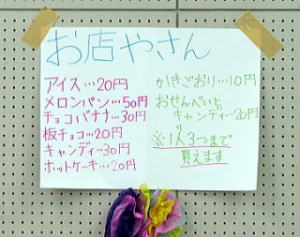 お店やさん
アイス…20円
メロンパン…50円
チョコバナナ…30円
板チョコ…20円
キャンディ…30円
ホットケーキ…20円
かきごおり…10円
おせんべいと
キャンディー20円
※1人3つまで
買えます